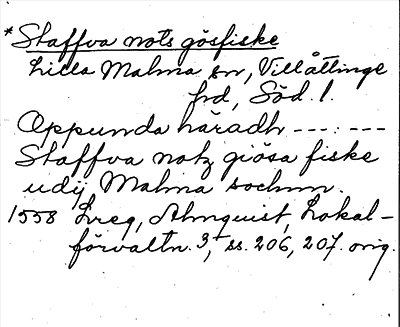 *Staffva nots gösfiske
Lilla Malma sn, Villåttinge
hd, Söd. l.
Oppunda häradh --- ---
Staffva notz giösa fiske
udij Malma sochnn.
1558 Lreg, Almquist, Lokal-
förvaltn. 3, ss. 206, 207. orig.